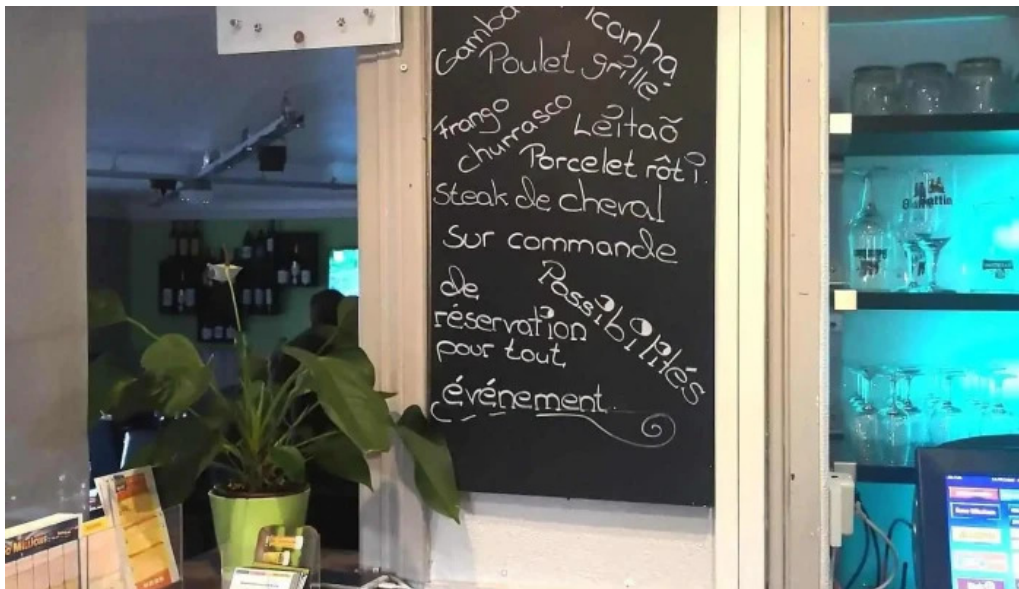 Gamba
Picanha
Poulet grillé
Frango
churrasco
Leitaõ
Porcelet rôti.
Steak de cheval
Sur commande
Possibilités
de
réservation
pour tout
événement